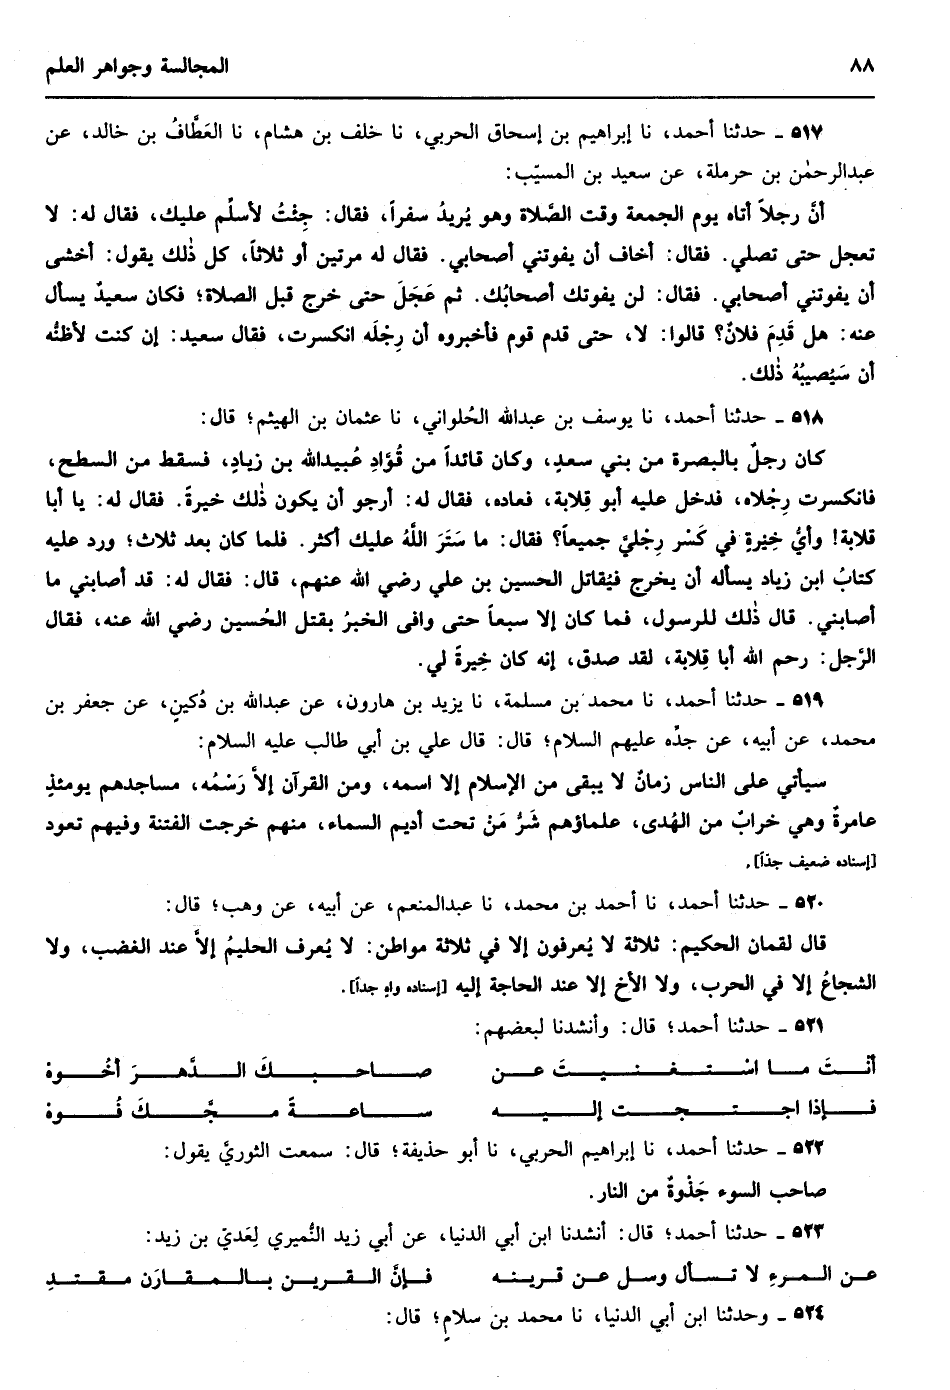 ٨٨ المجالسة وجواهر العلم
٥١٧ ـ حدثنا أحمد، نا إبراهيم بن إسحاق الحربي، نا خلف بن هشام، نا العَطَّافُ بن خالد، عن
عبدالرحمٰن بن حرملة، عن سعيد بن المسيّب:
أنَّ رجلاً أتاه يوم الجمعة وقت الصَّلاة وهو يُريدُ سفراً، فقال: جِئْتُ لأسلِّم عليك، فقال له: لا
تعجل حتى تصلي. فقال: أخاف أن يفوتني أصحابي. فقال له مرتين أو ثلاثاً، كل ذٰلك يقول: أخشى
أن يفوتني أصحابي. فقال: لن يفوتك أصحابُك. ثم عَجَلَ حتى خرج قبل الصلاة؛ فكان سعيدٌ يسأل
عنه: هل قَدِمَ فلانٌ؟ قالوا: لا، حتى قدم قوم فأخبروه أن رِجْلَه انكسرت، فقال سعيد: إن كنت لأظنُّه
أن سَيُصيبُهُ ذٰلك.
٥١٨ ـ حدثنا أحمد، نا يوسف بن عبدالله الحُلواني، نا عثمان بن الهيثم؛ قال:
كان رجلٌ بالبصرة من بني سعدٍ، وكان قائداً من قُوَّادِ عُبيدالله بن زيادٍ، فسقط من السطح،
فانكسرت رِجْلاه، فدخل عليه أبو قِلابة، فعاده، فقال له: أرجو أن يكون ذٰلك خيرةً. فقال له: يا أبا
قلابة! وأيُّ خِيْرةٍ في كَسْر رِجْليَّ جميعاً؟ فقال: ما سَتَرَ اللَّهُ عليك أكثر. فلما كان بعد ثلاث؛ ورد عليه
كتابُ ابن زياد يسأله أن يخرج فيُقاتل الحسين بن علي رضي الله عنهم، قال: فقال له: قد أصابني ما
أصابني. قال ذٰلك للرسول، فما كان إلا سبعاً حتى وافى الخبرُ بقتل الحُسين رضي الله عنه، فقال
الرَّجل: رحم الله أبا قِلابة، لقد صدق، إنه كان خِيرةً لي.
٥١٩ ـ حدثنا أحمد، نا محمد بن مسلمة، نا يزيد بن هارون، عن عبدالله بن دُكينٍ، عن جعفر بن
محمد، عن أبيه، عن جدِّه عليهم السلام؛ قال: قال علي بن أبي طالب عليه السلام:
سيأتي على الناس زمانٌ لا يبقى من الإسلام إلا اسمه، ومن القرآن إلاَّ رَسْمُه، مساجدهم يومئذٍ
عامرةٌ وهي خرابٌ من الهُدى، علماؤهم شَرُّ مَنْ تحت أديم السماء، منهم خرجت الفتنة وفيهم تعود
[إسناده ضعيف جداً].
٥٢٠ ـ حدثنا أحمد، نا أحمد بن محمد، نا عبدالمنعم، عن أبيه، عن وهب؛ قال:
قال لقمان الحكيم: ثلاثة لا يُعرفون إلا في ثلاثة مواطن: لا يُعرف الحليمُ إلاَّ عند الغضب، ولا
الشجاعُ إلا في الحرب، ولا الأخ إلا عند الحاجة إليه [إسناده واهٍ جداً].
٥٢١ ـ حدثنا أحمد؛ قال: وأنشدنا لبعضهم:
أنْتَ ما اسْتغنيتَ عن صاحبكَ الدَّهرَ أخُوهْ
فإذا احتجت إليه ساعةً مجَّكَ فُوهْ
٥٢٢ ـ حدثنا أحمد، نا إبراهيم الحربي، نا أبو حذيفة؛ قال: سمعت الثوريَّ يقول:
صاحب السوء جَذْوةٌ من النار.
٥٢٣ ـ حدثنا أحمد؛ قال: أنشدنا ابن أبي الدنيا، عن أبي زيد النُّميري لِعَديّ بن زيد:
عن المرءِ لا تسأل وسل عن قرينه فإنَّ القرين بالمقارَن مقتدِ
٥٢٤ ـ وحدثنا ابن أبي الدنيا، نا محمد بن سلامٍ؛ قال: